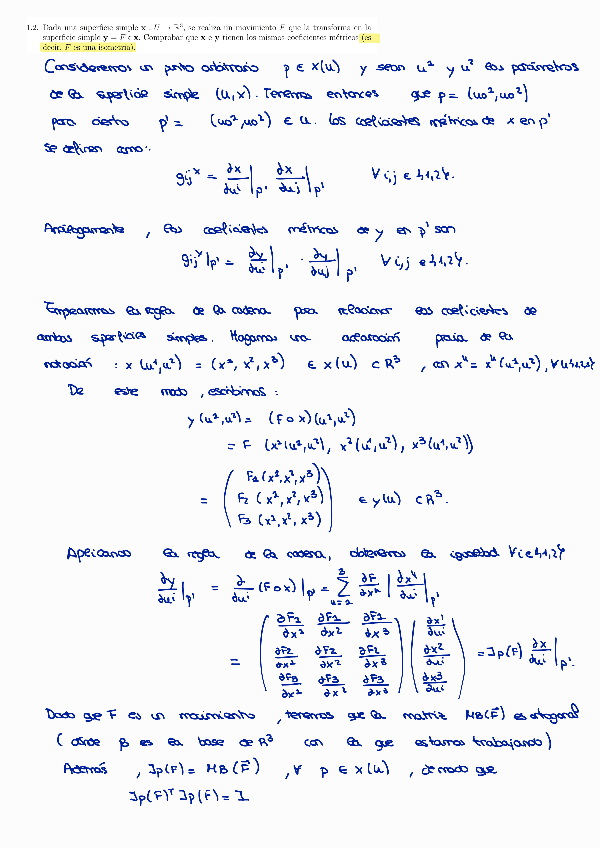 1.2. Dada una superficie simple x : U → R³, se realiza un movimiento F que la transforma en la
superficie simple y = F ∘ x. Comprobar que x e y tienen los mismos coeficientes métricos (es
decir, F es una isometría).
Consideremos un punto arbitrario p ∈ x(U) y sean u¹ y u² los parámetros
de la superficie simple (U, x). Tenemos entonces que p = (u₀¹, u₀²)
para cierto p' = (u₀¹, u₀²) ∈ U. Los coeficientes métricos de x en p'
se definen como:
gij^x = ∂x/∂ui |p' ∂x/∂uj |p' ∀ i,j ∈ {1,2}.
Análogamente, los coeficientes métricos de y en p' son
gij^y |p' = ∂y/∂ui |p' · ∂y/∂uj |p' ∀ i,j ∈ {1,2}.
Empearemos la regla de la cadena para relacionar los coeficientes de
ambas superficies simples. Hagamos una aclaración previa de la
notación : x (u¹,u²) = (x¹, x², x³) ∈ x(U) ⊂ R³, con x^k = x^k (u¹,u²), ∀ k∈{1,2,3}
De este modo, escribimos :
y (u¹,u²) = (F ∘ x)(u¹,u²)
= F (x¹(u¹,u²), x²(u¹,u²), x³(u¹,u²))
= ( F₁ (x¹,x²,x³)
F₂ (x¹,x²,x³)
F₃ (x¹,x²,x³) ) ∈ y(U) ⊂ R³.
Aplicando la regla de la cadena, obtenemos la igualdad ∀ i ∈ {1,2}
∂y/∂ui |p' = ∂/∂ui (F ∘ x) |p' = Σ³k=1 ∂F/∂x^k | ∂x^k/∂ui |p'
= ( ∂F1/∂x¹ ∂F1/∂x² ∂F1/∂x³ ) ( ∂x¹/∂ui )
( ∂F2/∂x¹ ∂F2/∂x² ∂F2/∂x³ ) ( ∂x²/∂ui ) = Jp(F) ∂x/∂ui |p'.
( ∂F3/∂x¹ ∂F3/∂x² ∂F3/∂x³ ) ( ∂x³/∂ui )
Dado que F es un movimiento, tenemos que la matriz MB(F⃗) es ortogonal
(donde β es la base de R³ con la que estamos trabajando)
Además, Jp(F) = MB(F⃗), ∀ p ∈ x(U), de modo que
Jp(F)ᵀ Jp(F) = I